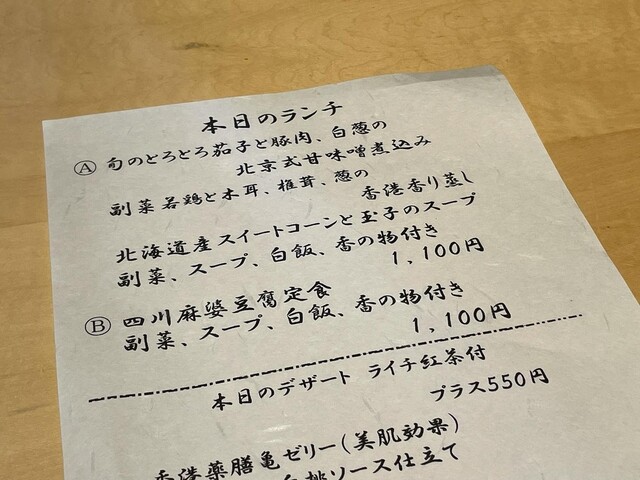 本日のランチ
Ⓐ 旬のとろとろ茄子と豚肉、白葱の
北京式甘味噌煮込み
副菜若鶏と木耳、椎茸、葱の
香港香り蒸し
北海道産スイートコーンと玉子のスープ
副菜、スープ、白飯、香の物付き
1,100円
Ⓑ 四川麻婆豆腐定食
副菜、スープ、白飯、香の物付き
1,100円
本日のデザート ライチ紅茶付
プラス550円
香港薬膳亀ゼリー(美肌効果)
白桃ソース仕立て